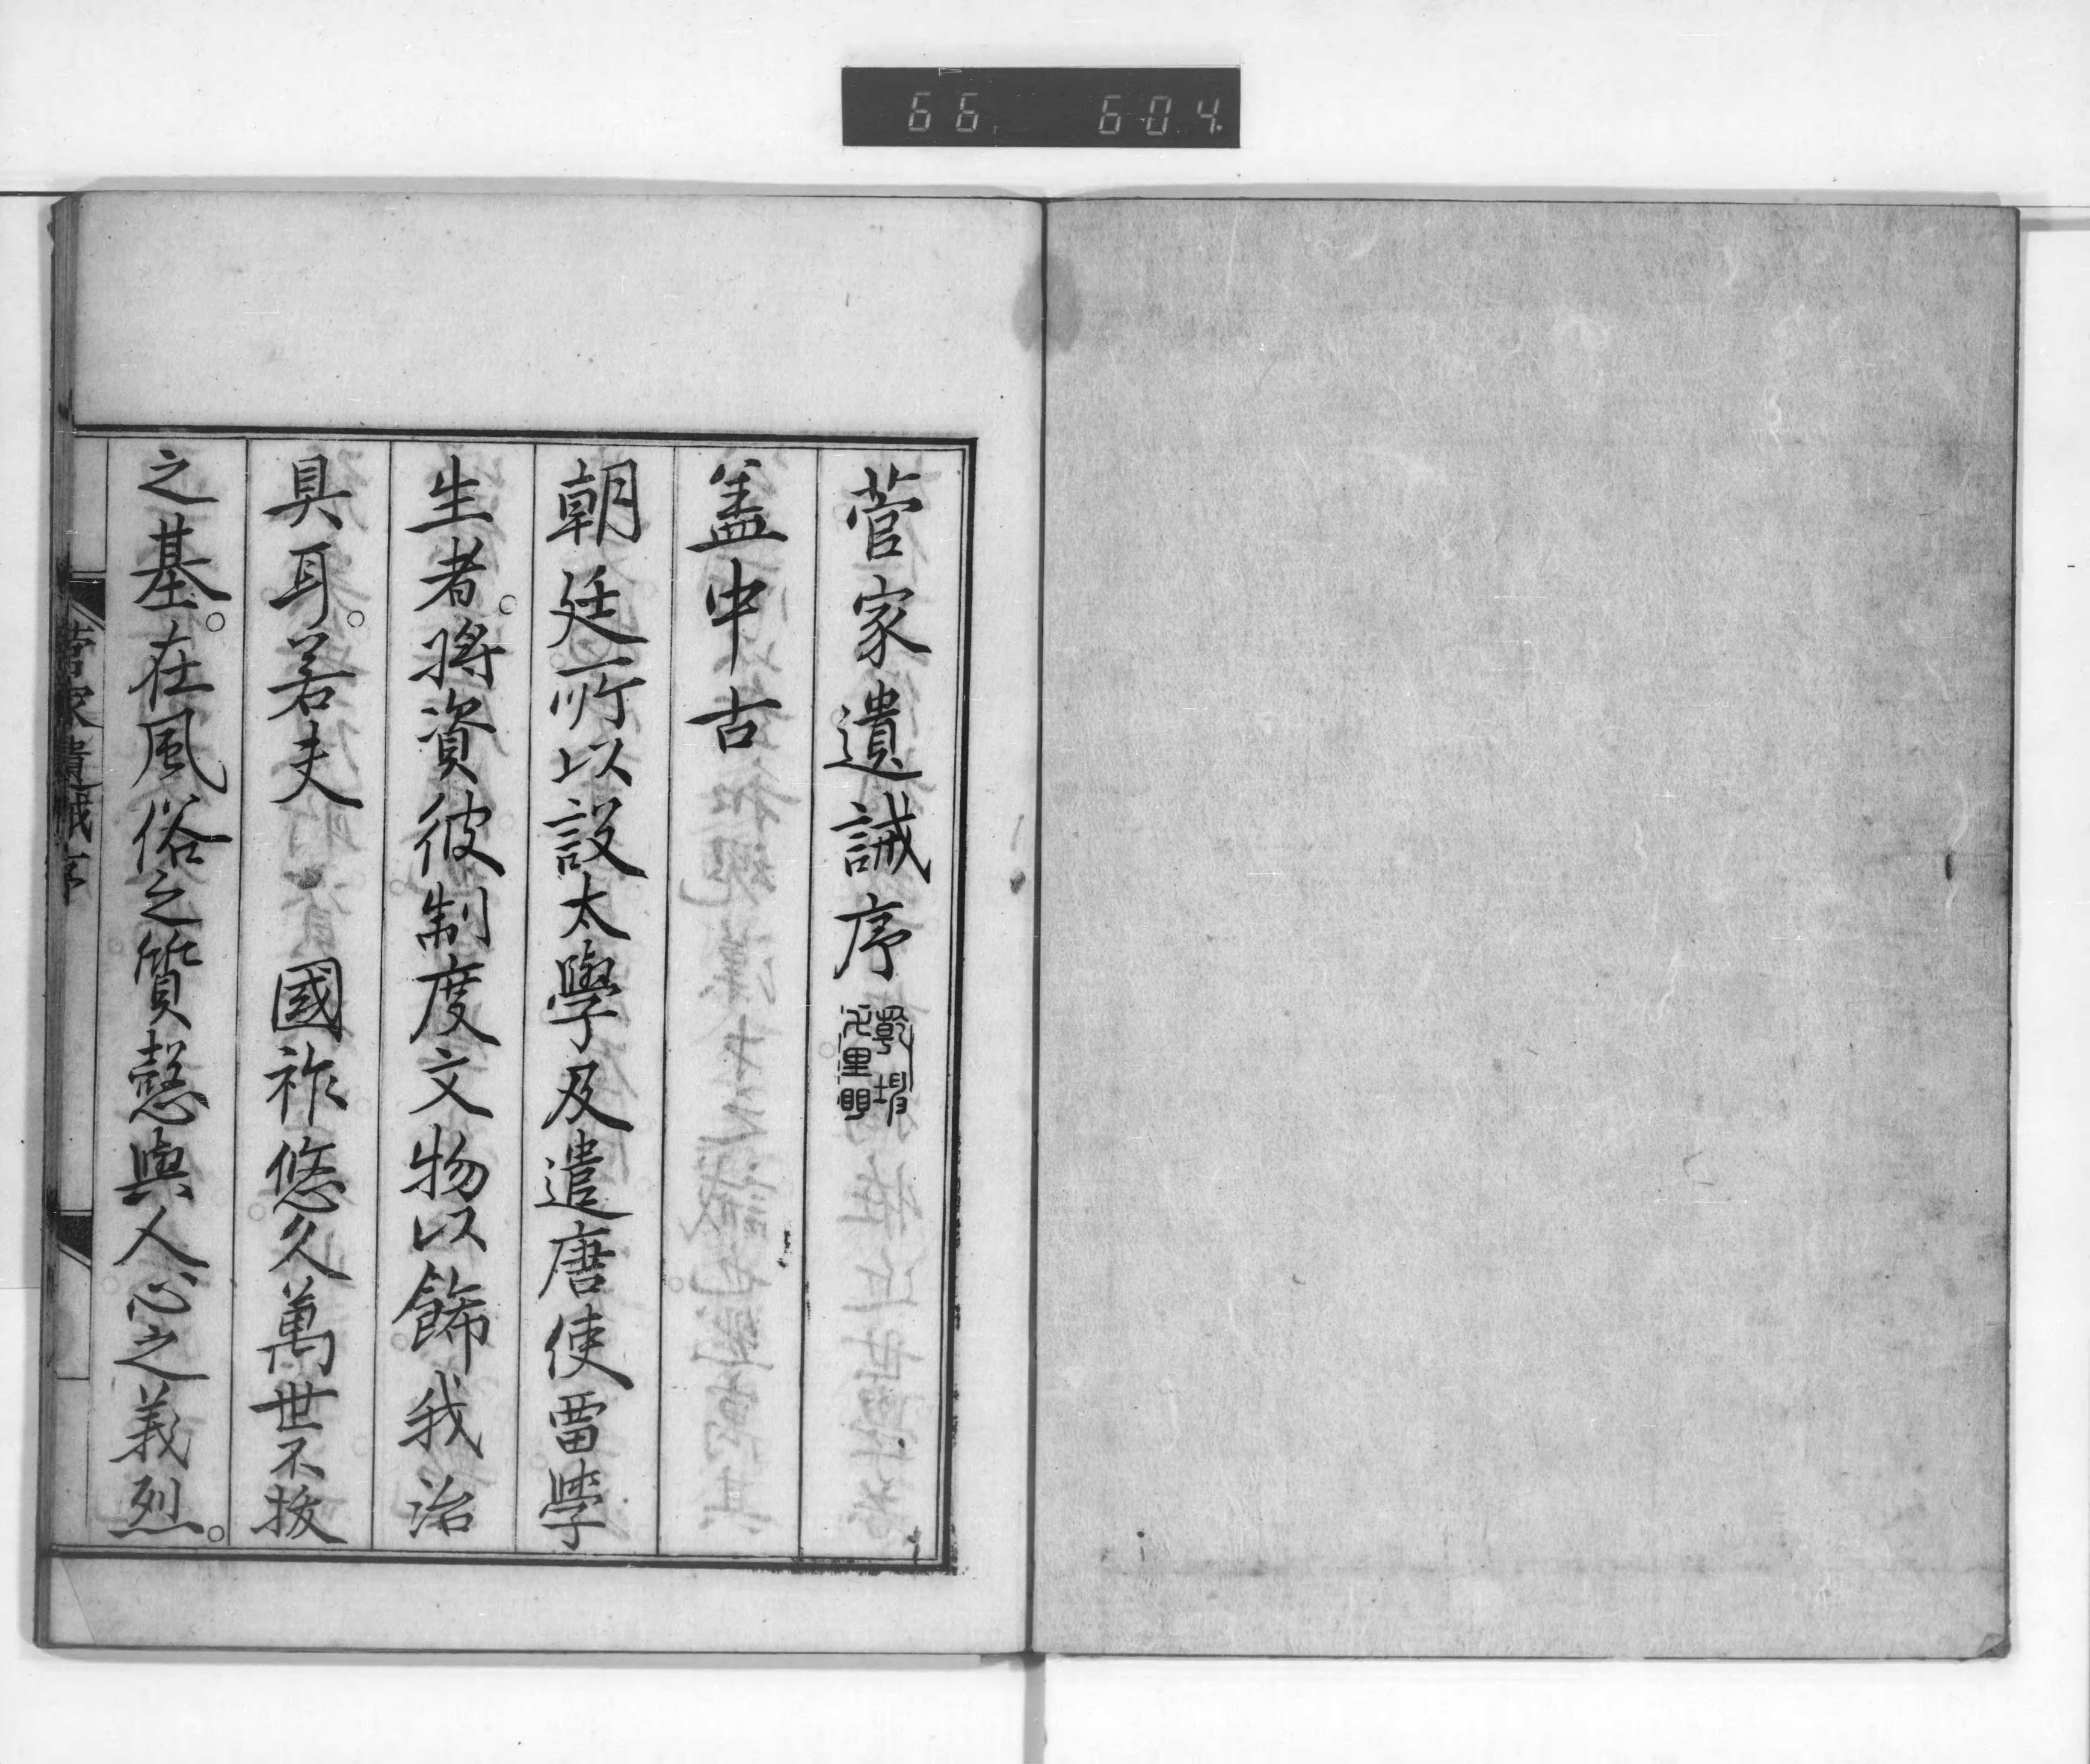 66 604
菅家遺誡序
葢中古
朝廷所以設太學及遣唐使畱學
生者。將資彼制度文物以飾我治
具耳。若夫 國祚悠久萬世不拔
之基。在風俗之質慤與人心之義烈。
菅家遺誡序